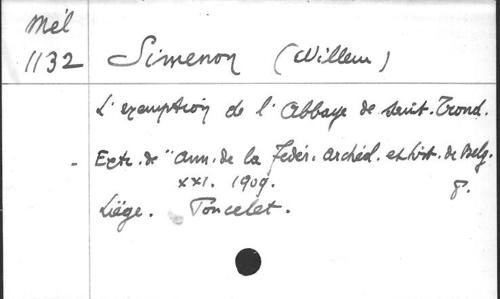 Mél
1132
Simenon (Willem)
L'exemption de l'Abbaye de Saint-Trond.
- Extr. de "Ann. de la Fédér. Archéol. et hist. de Belg.
XXI. 1909. 8.
Liège. Poncelet.